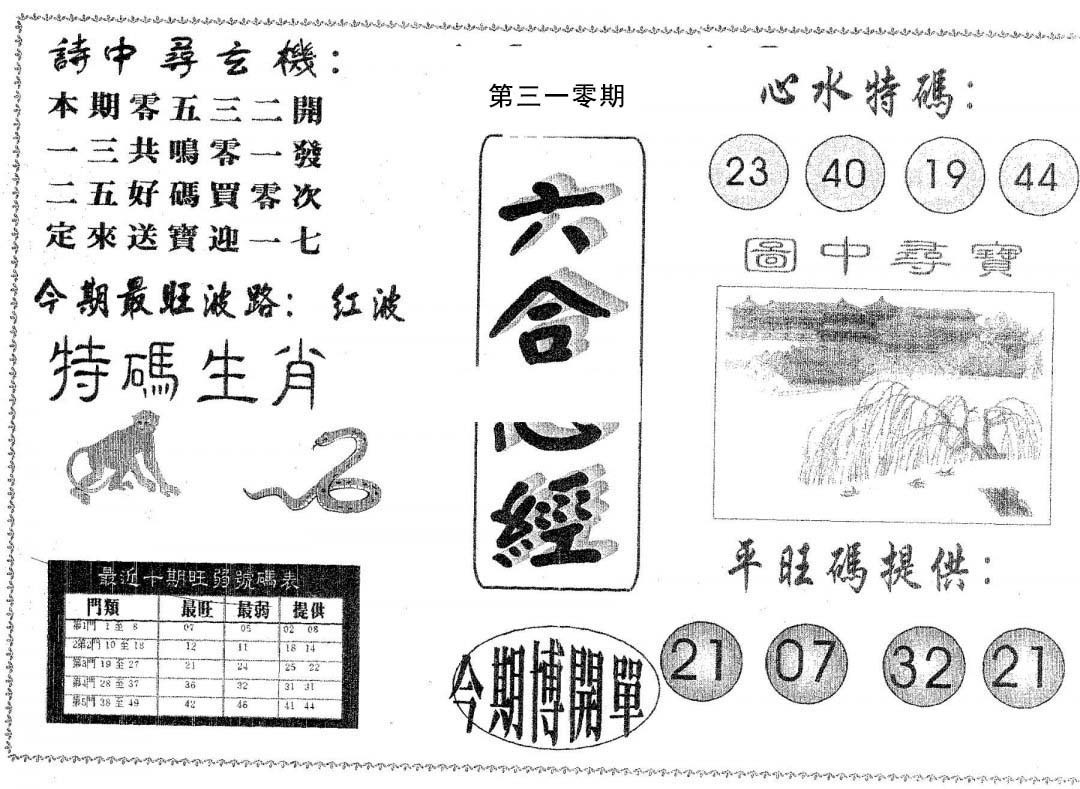 詩中尋玄機：
本期零五三二開
一三共鳴零一發
二五好碼買零次
定來送寶迎一七
今期最旺波路：红波
特碼生肖
最近十期旺弱號碼表
門類 最旺 最弱 提供
第1門 1 至 8 07 05 02 08
2第2門 10 至 18 12 11 18 14
第3門 19 至 27 21 24 25 22
第4門 28 至 37 36 32 31 31
第5門 38 至 49 42 46 41 44
第三一零期
六合
心經
今期博開單
心水特碼：
23 40 19 44
圖中尋寶
平旺碼提供：
21 07 32 21